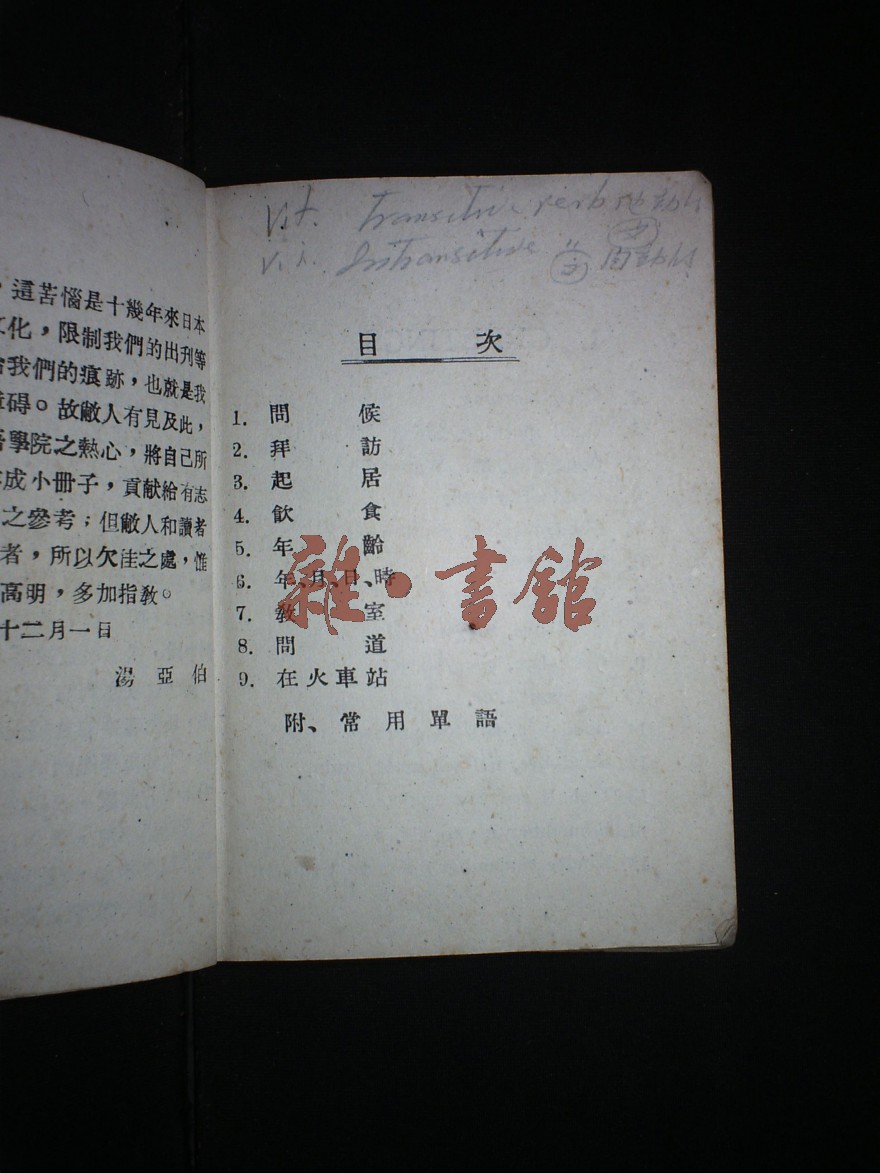 ，這苦惱是十幾年來日本
化，限制我們的出刋等
我們的痕跡，也就是我
碍。故敝人有見及此，
學院之熱心，將自己所
成小冊子，貢献給有志
之參考；但敝人和讀者
者，所以欠洼之處，惟
高明，多加指敎。
十二月一日
湯亞伯
V.t. transitive verb 他動
V.i. Intransitive " 自動
目次
1. 問候
2. 拜訪
3. 起居
4. 飲食
5. 年齡
6. 年、月、日、時
7. 敎室
8. 問道
9. 在火車站
附、常用單語
雜·書館